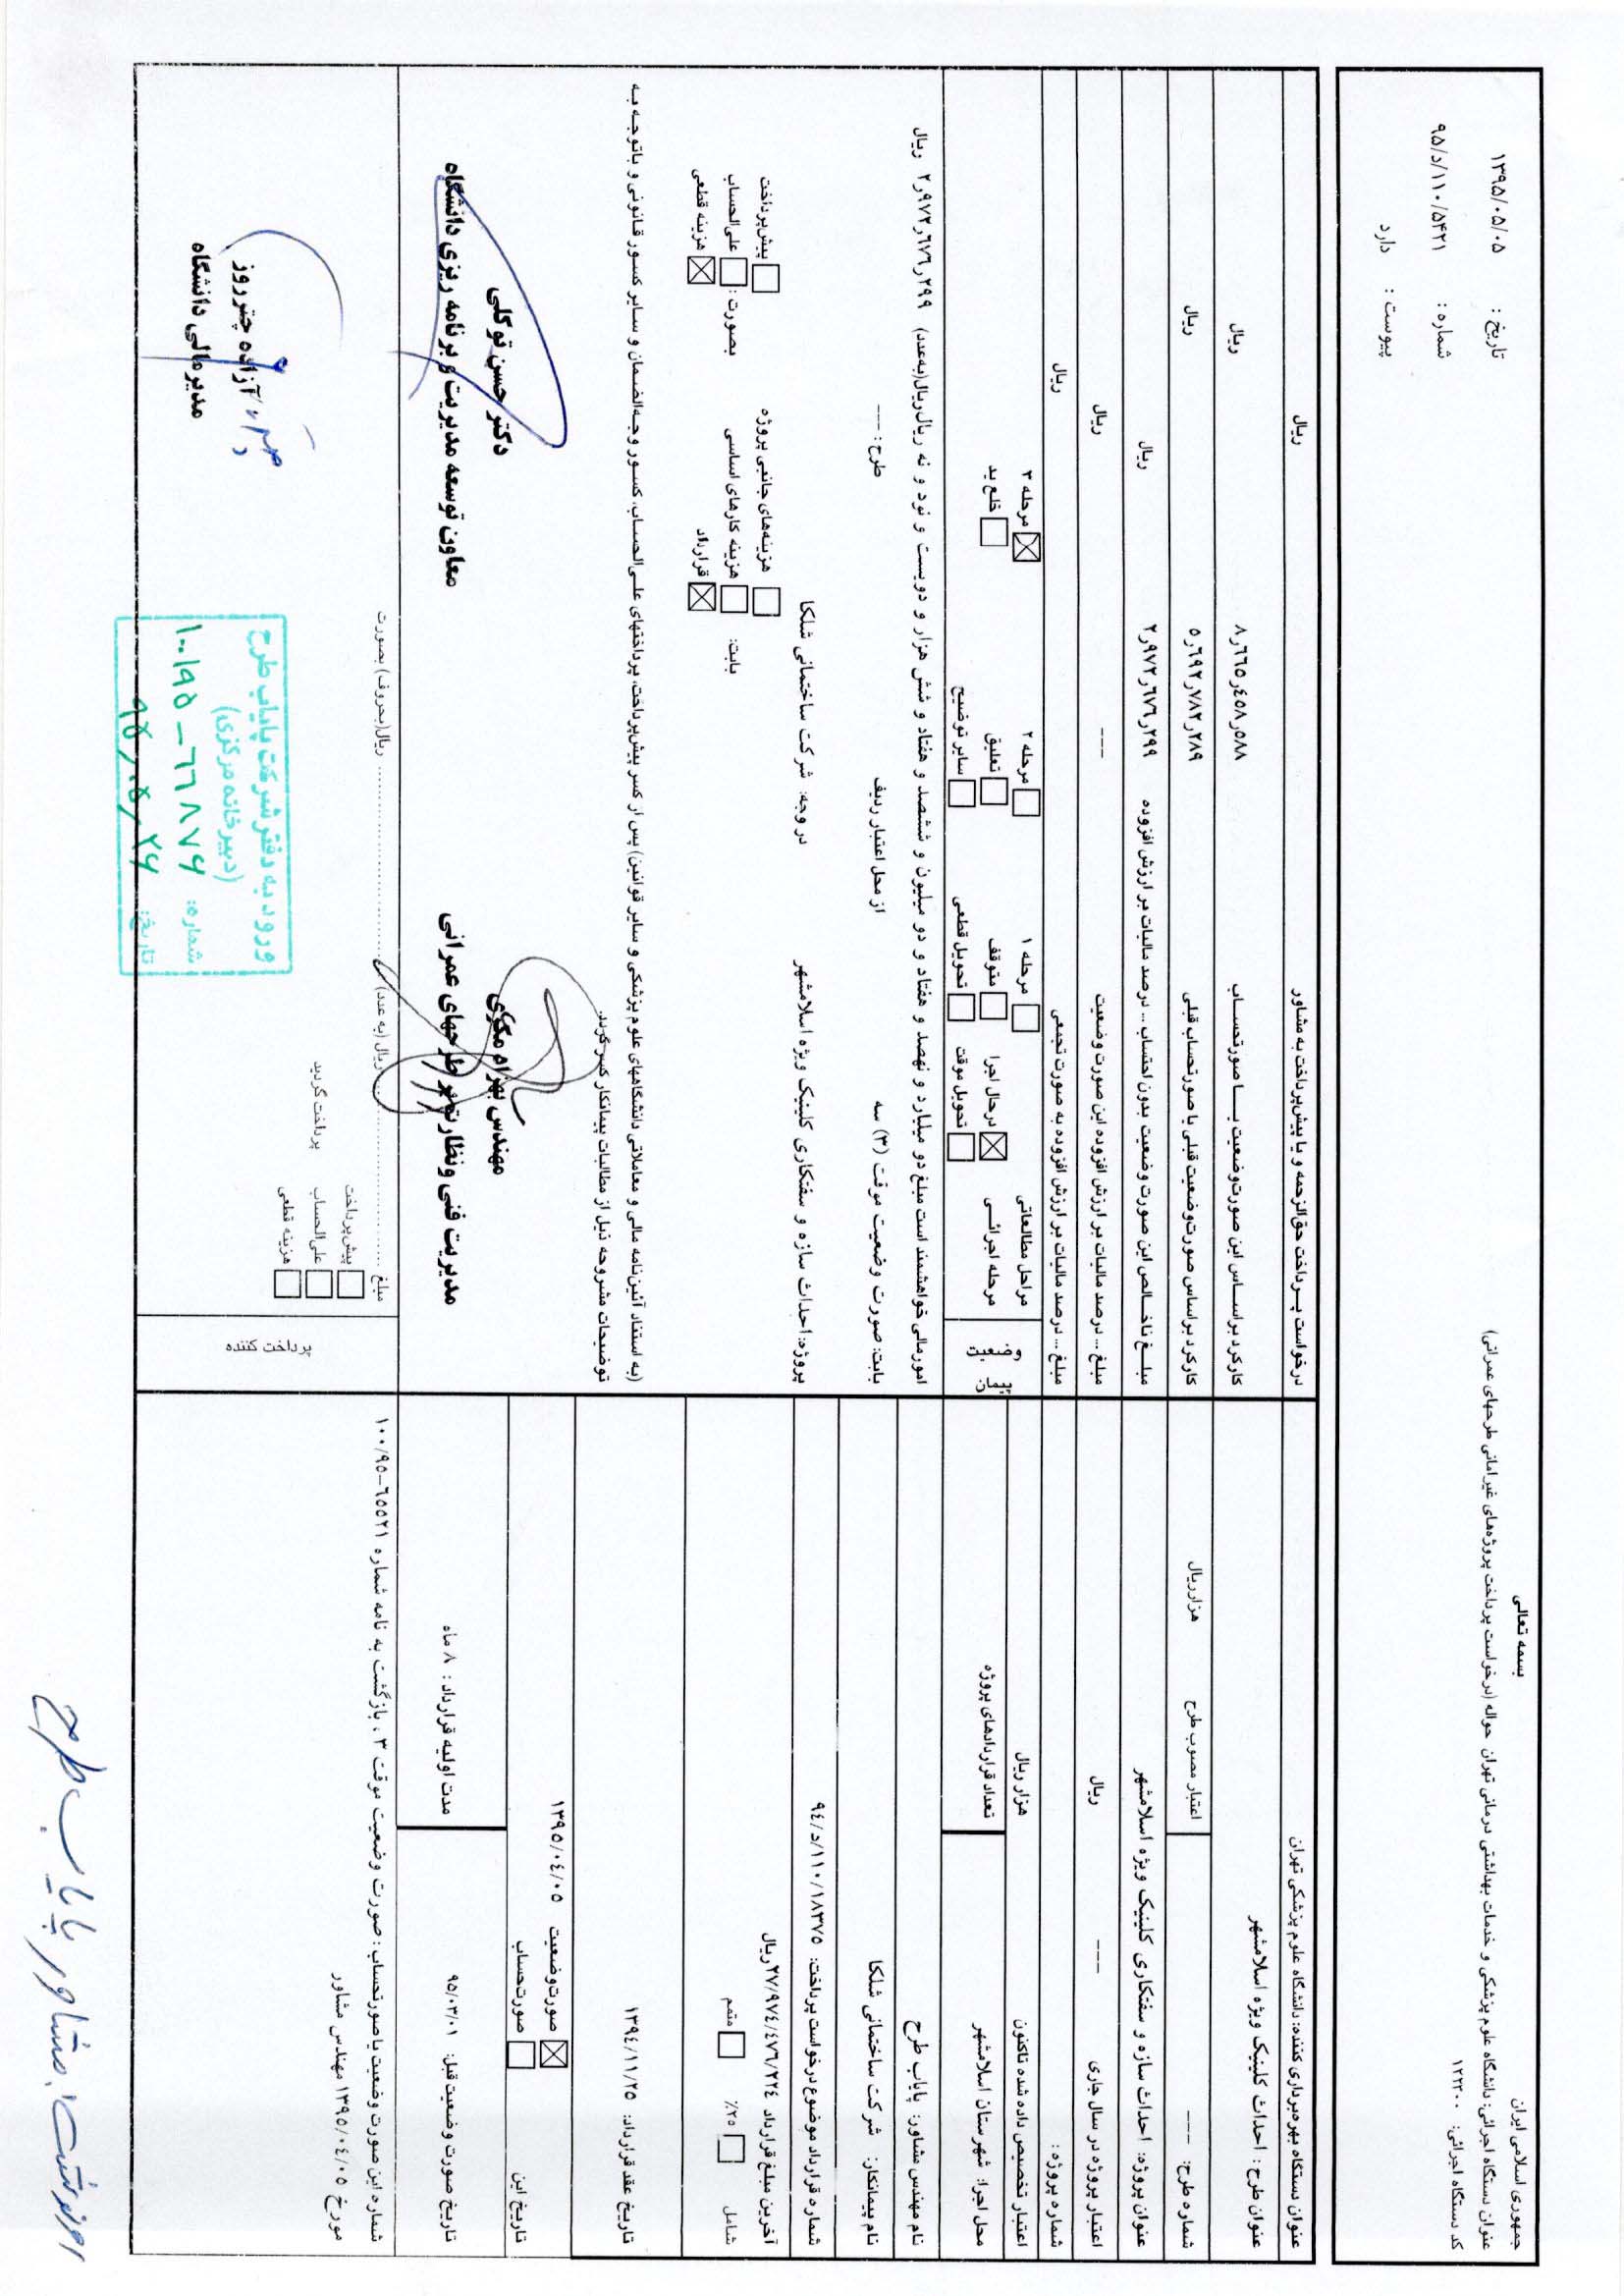 بسمه تعالی
جمهوری اسلامی ایران
عنوان دستگاه اجرائی: دانشگاه علوم پزشکی و خدمات بهداشتی درمانی تهران حواله (درخواست پرداخت پروژه‌های غیرامانی طرحهای عمرانی)
کد دستگاه اجرائی: ۱۲۲۳۰۰
تاریخ : ۱۳۹۵/۰۵/۰۵
شماره : ۹۵/د/۱۱۰/۵۴۲۱
پیوست : دارد
عنوان دستگاه بهره‌برداری کننده: دانشگاه علوم پزشکی تهران
عنوان طرح : احداث کلینیک ویژه اسلامشهر
شماره طرح: ---
اعتبار مصوب طرح هزارریال
عنوان پروژه: احداث سازه و سفتکاری کلینیک ویژه اسلامشهر
اعتبار پروژه در سال جاری --- ریال
شماره پروژه :
اعتبار تخصیص داده شده تاکنون هزار ریال
محل اجرا: شهرستان اسلامشهر
تعداد قراردادهای پروژه
نام مهندس مشاور: پایاب طرح
نام پیمانکار: شرکت ساختمانی شلکا
شماره قرارداد موضوع درخواست پرداخت: ۹٤/د/۱۱۰/۱۸۳۷۵
آخرین مبلغ قرارداد ۲۷/۹۷٤/٤۷٦/۲۲٤ریال
شامل ۲۵٪ متمم
تاریخ عقد قرارداد: ۱۳۹٤/۱۱/۲۵
تاریخ این صورت‌وضعیت ۱۳۹۵/۰٤/۰۵
صورت‌حساب
تاریخ صورت وضعیت قبل: ۹۵/۰۳/۰۱
مدت اولیه قرارداد : ۸ ماه
شماره این صورت وضعیت یا صورتحساب : صورت وضعیت موقت ۳ ، بازگشت به نامه شماره ٦۵۵۲۱-۱۰۰/۹۵
مورخ ۱۳۹۵/۰٤/۰۵ مهندس مشاور
درخواست پرداخت حق‌الزحمه و یا پیش‌پرداخت به مشاور ریال
کارکرد براساس این صورت‌وضعیت یا صورتحساب ۸٫٦٦۵٫٤۵۸٫۵۸۸ ریال
کارکرد براساس صورت‌وضعیت قبلی یا صورتحساب قبلی ۵٫٦۹۲٫۷۸۲٫۲۸۹ ریال
مبلغ ناخالص این صورت وضعیت بدون احتساب .. درصد مالیات بر ارزش افزوده ۲٫۹۷۲٫٦۷٦٫۲۹۹ ریال
مبلغ ... درصد مالیات بر ارزش افزوده این صورت وضعیت --- ریال
مبلغ ... درصد مالیات بر ارزش افزوده به صورت تجمعی ریال
مراحل مطالعاتی مرحله ۱ مرحله ۲ مرحله ۳
مرحله اجرائی درحال اجرا متوقف تعلیق خلع ید
تحویل موقت تحویل قطعی سایر توضیح
امورمالی خواهشمند است مبلغ دو میلیارد و نهصد و هفتاد و دو میلیون و ششصد و هفتاد و شش هزار و دویست و نود و نه ریال‌ریال(به‌عدد) ۲٫۹۷۲٫٦۷٦٫۲۹۹ ریال
بابت: صورت وضعیت موقت (۳) سه از محل اعتبار ردیف طرح : ---
پروژه: احداث سازه و سفتکاری کلینیک ویژه اسلامشهر در وجه: شرکت ساختمانی شلکا
بابت: هزینه‌های جانبی پروژه بصورت : پیش‌پرداخت
هزینه کارهای اساسی علی‌الحساب
قرارداد هزینه قطعی
(به استناد آئین‌نامه مالی و معاملاتی دانشگاههای علوم پزشکی و سایر قوانین) پس از کسر پیش‌پرداخت، پرداختهای علی‌الحساب، کسور وجه‌الضمان و سایر کسور قانونی و باتوجه به
توضیحات مشروحه ذیل از مطالبات پیمانکار کسر گردد.
مهندس بهرام مکری
مدیریت فنی و نظارت بر طرحهای عمرانی
دکتر حسن توکلی
معاون توسعه مدیریت و برنامه ریزی دانشگاه
پرداخت کننده
مبلغ ریال (به عدد) ریال(بحروف) بصورت
پیش‌پرداخت
علی‌الحساب پرداخت گردید
هزینه قطعی
آزاده چترروز
مدیر مالی دانشگاه
ورود به دفتر شرکت پایاب طرح
(دبیرخانه مرکزی)
شماره: ۱۰۰/۹۵-۶۶۸۷۶
تاریخ: ۹۵/۰۵/۲۶
رونوشت: مشاور پایاب طرح